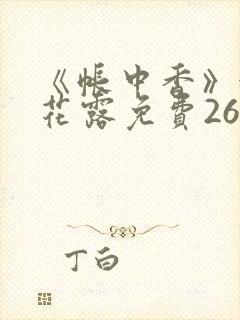 《帐中香》
花露免費26
丁白